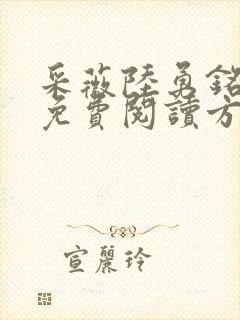 采薇陸勇銘
免費閱讀方
宣麗玲